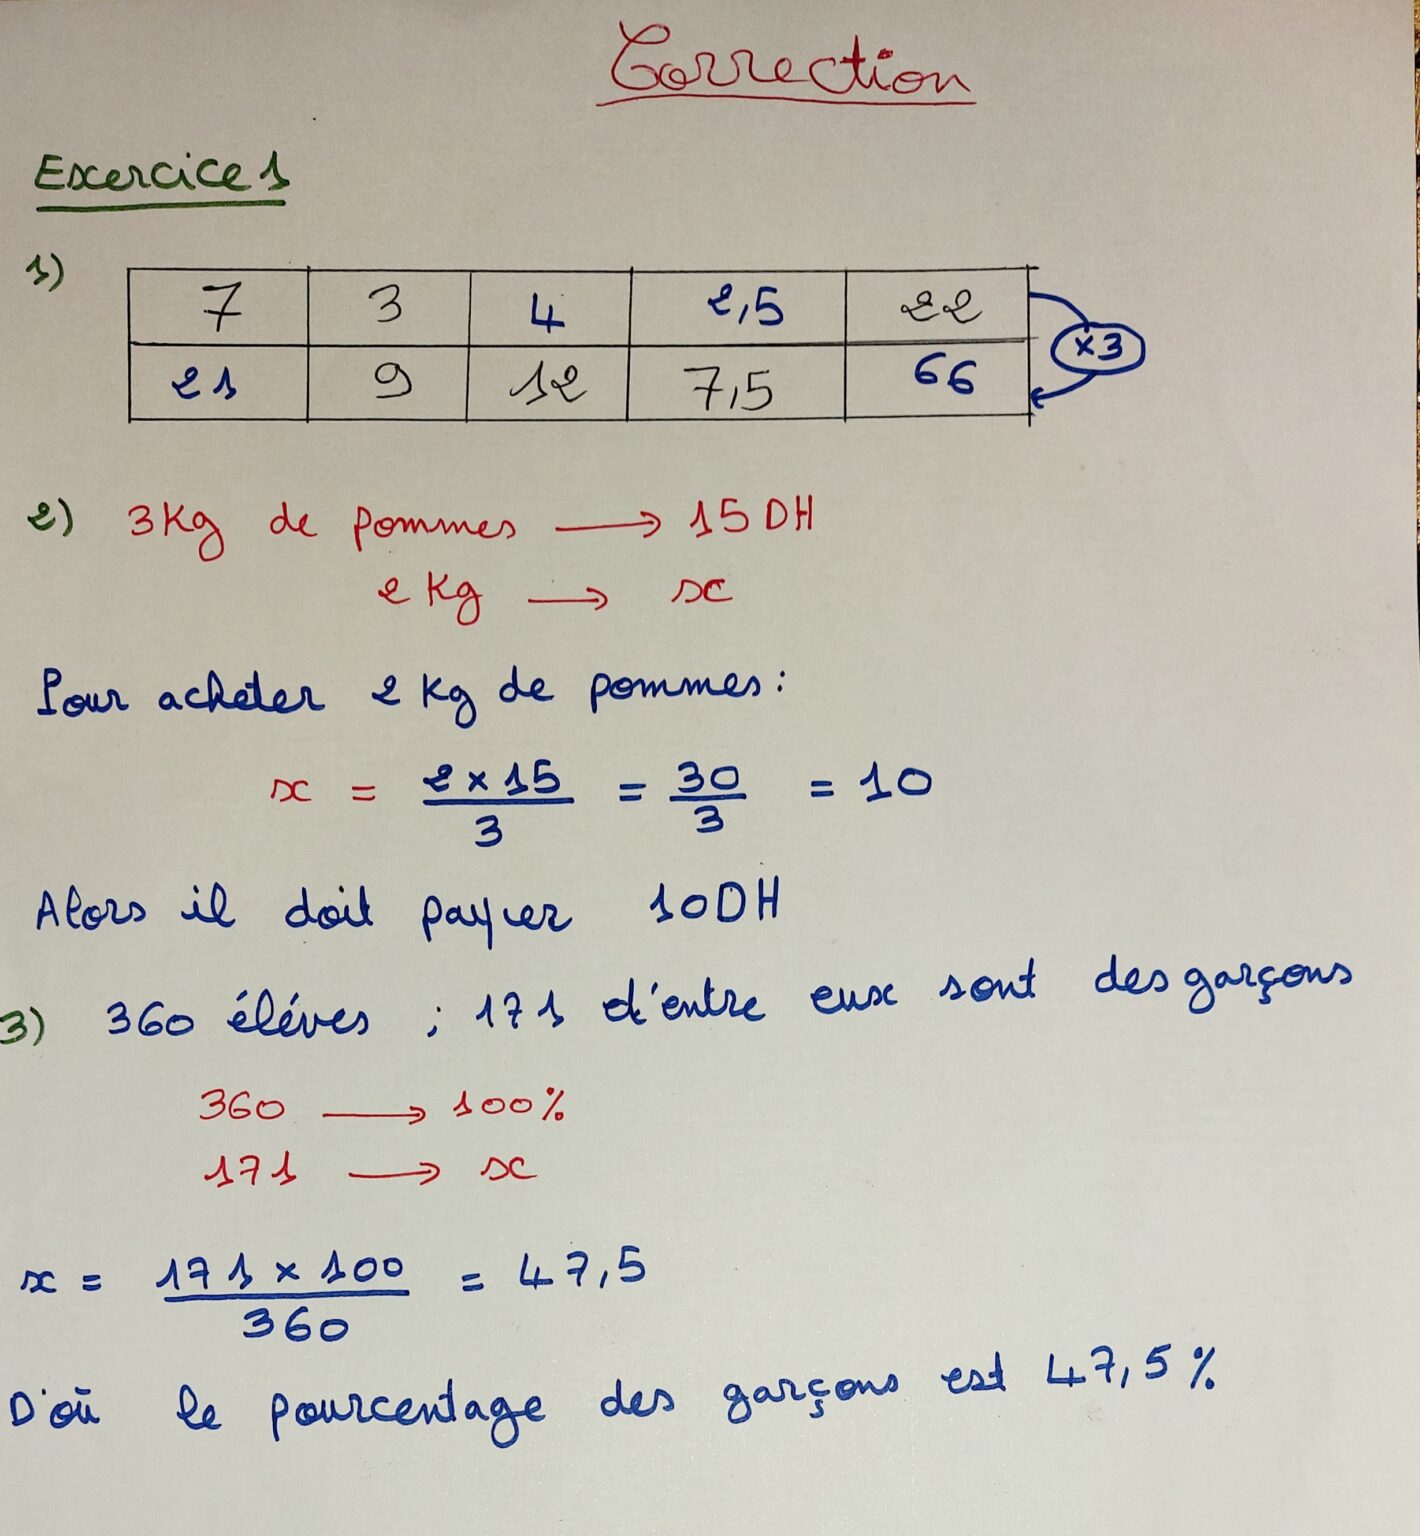 Correction
Exercice 1
1)
7 3 4 2,5 22
×3
21 9 12 7,5 66
2) 3Kg de pommes → 15 DH
2 Kg → x
Pour acheter 2 Kg de pommes :
x = 2 × 15 / 3 = 30 / 3 = 10
Alors il doit payer 10DH
3) 360 éléves ; 171 d'entre eux sont des garçons
360 → 100%
171 → x
x = 171 × 100 / 360 = 47,5
D'où le pourcentage des garçons est 47,5 %